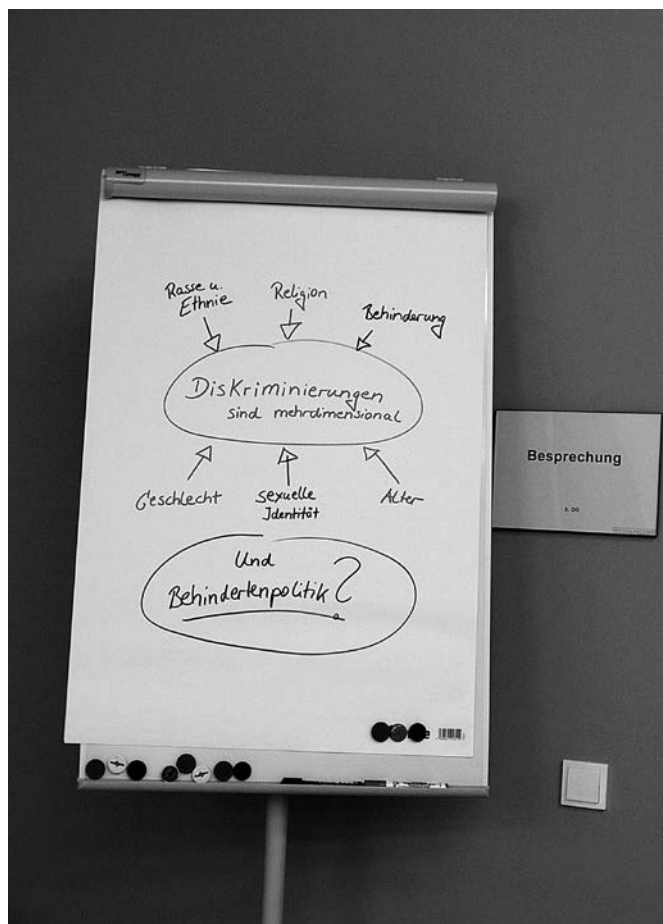 Rasse u.
Ethnie
Religion
Behinderung
Diskriminierungen
sind mehrdimensional
Geschlecht
sexuelle
Identität
Alter
Und
Behindertenpolitik?
Besprechung